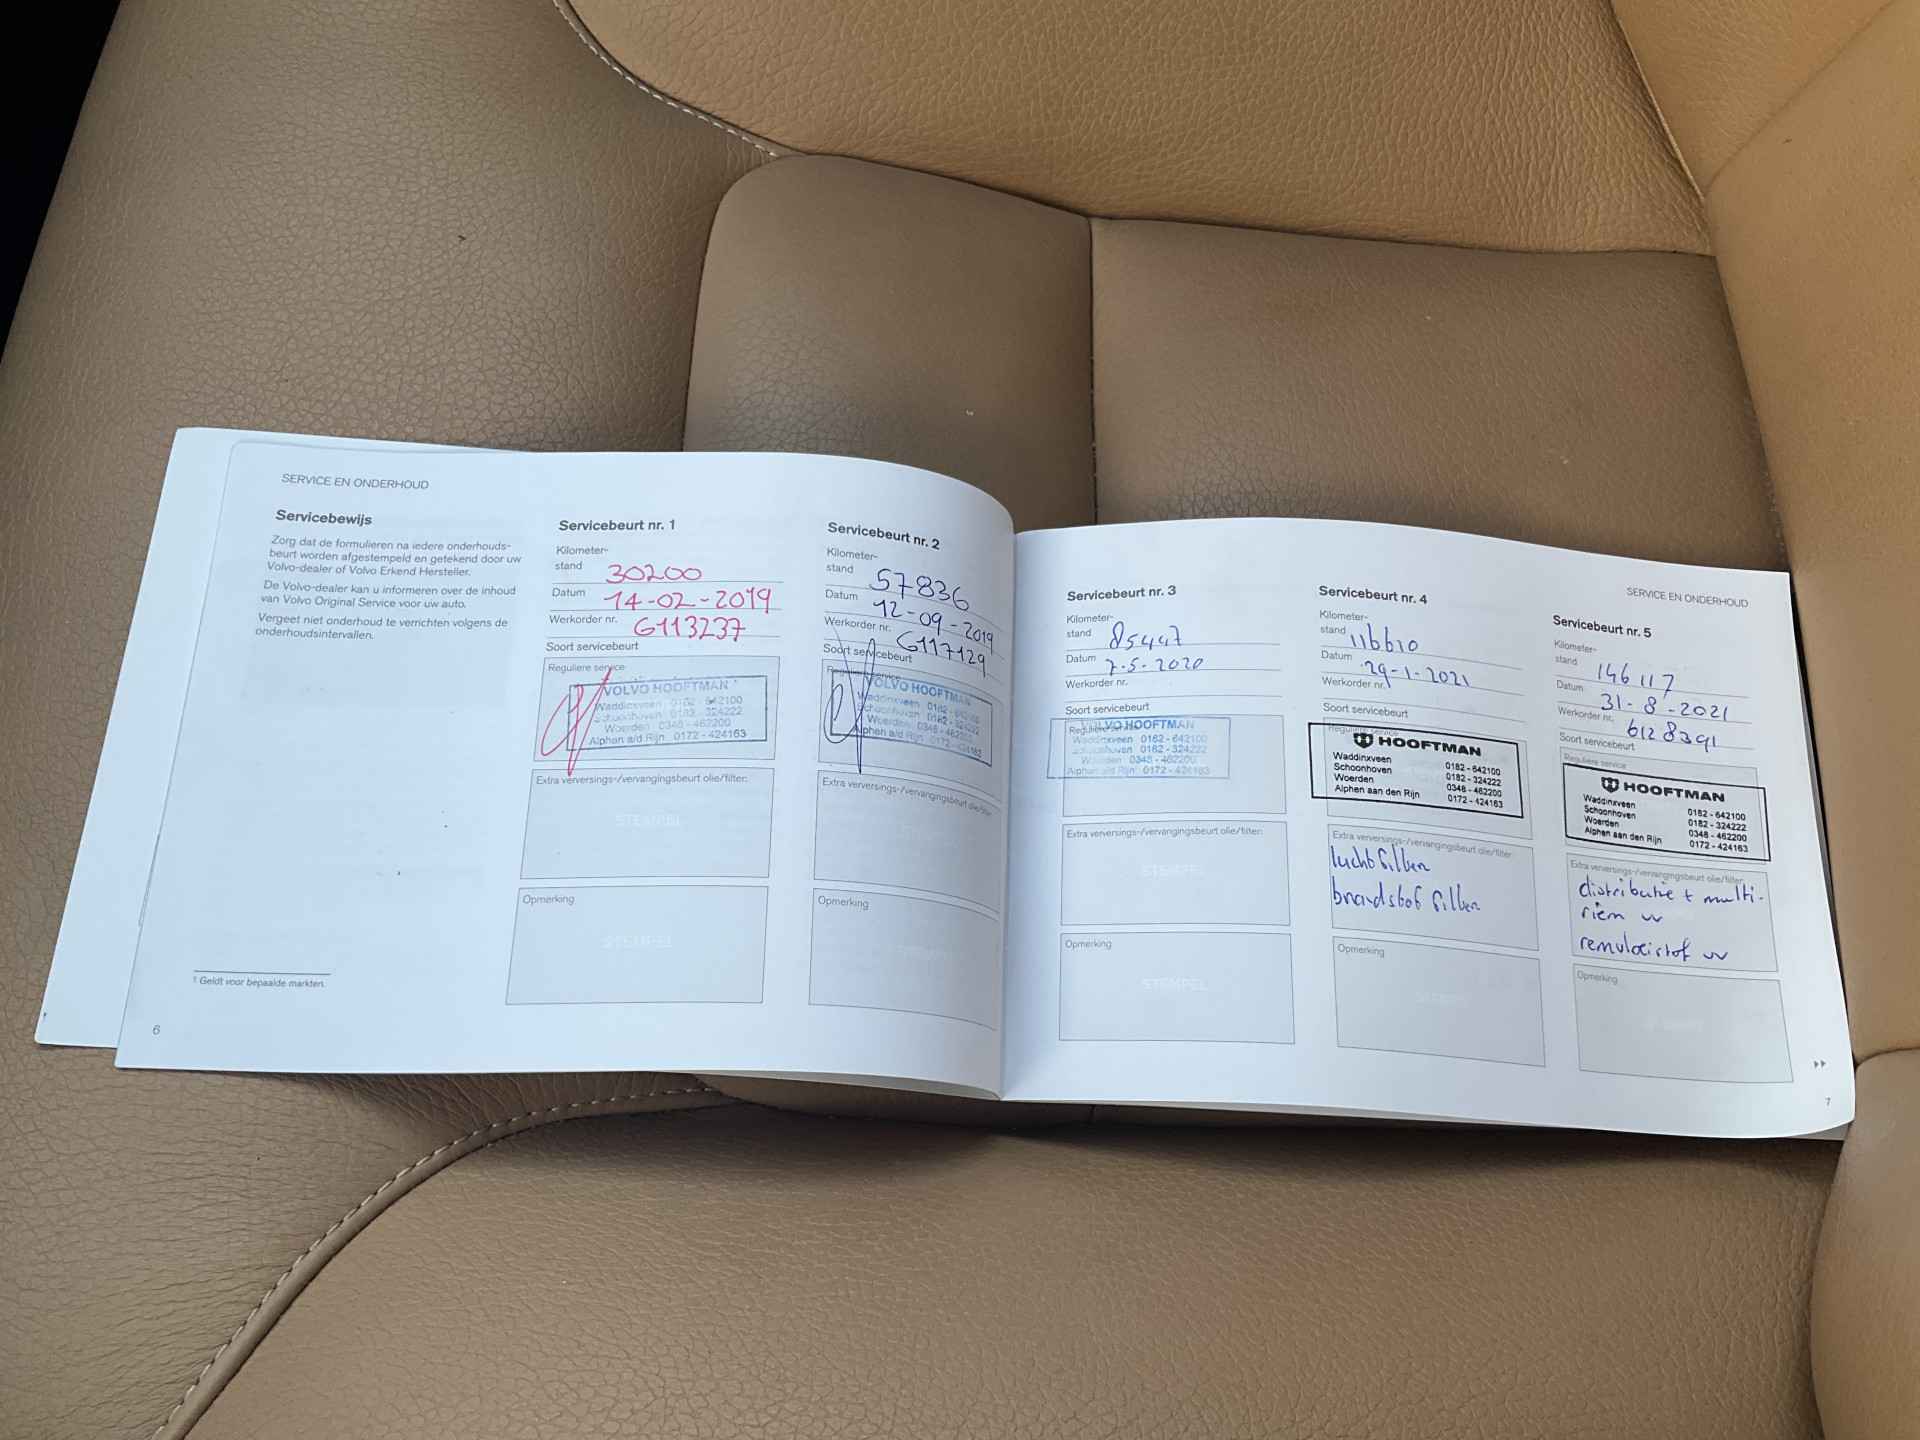 SERVICE EN ONDERHOUD
Servicebewijs
Zorg dat de formulieren na iedere onderhouds-
beurt worden afgestempeld en getekend door uw
Volvo-dealer of Volvo Erkend Hersteller.
De Volvo-dealer kan u informeren over de inhoud
van Volvo Original Service voor uw auto.
Vergeet niet onderhoud te verrichten volgens de
onderhoudsintervallen.
1 Geldt voor bepaalde markten.
6
Servicebeurt nr. 1
Kilometer-
stand 30200
Datum 14-02-2019
Werkorder nr. G113237
Soort servicebeurt
Reguliere service
VOLVO HOOFTMAN
Waddinxveen 0182 - 642100
Schoonhoven 0182 - 324222
Woerden 0348 - 462200
Alphen a/d Rijn 0172 - 424163
Extra verversings-/vervangingsbeurt olie/filter:
STEMPEL
Opmerking
STEMPEL
Servicebeurt nr. 2
Kilometer-
stand 57836
Datum 12-09-2019
Werkorder nr. G117129
Soort servicebeurt
Reguliere service
VOLVO HOOFTMAN
Waddinxveen 0182 - 642100
Schoonhoven 0182 - 324222
Woerden 0348 - 462200
Alphen a/d Rijn 0172 - 424163
Extra verversings-/vervangingsbeurt olie/filter:
Opmerking
Servicebeurt nr. 3
Kilometer-
stand 85447
Datum 7-5-2020
Werkorder nr.
Soort servicebeurt
Reguliere service
VOLVO HOOFTMAN
Waddinxveen 0182 - 642100
Schoonhoven 0182 - 324222
Woerden 0348 - 462200
Alphen a/d Rijn 0172 - 424163
Extra verversings-/vervangingsbeurt olie/filter:
STEMPEL
Opmerking
STEMPEL
Servicebeurt nr. 4
Kilometer-
stand 116610
Datum 29-1-2021
Werkorder nr.
Soort servicebeurt
Reguliere service
HOOFTMAN
Waddinxveen 0182 - 642100
Schoonhoven 0182 - 324222
Woerden 0348 - 462200
Alphen aan den Rijn 0172 - 424163
Extra verversings-/vervangingsbeurt olie/filter:
luchtfilter
brandstof filter
Opmerking
STEMPEL
SERVICE EN ONDERHOUD
Servicebeurt nr. 5
Kilometer-
stand 146117
Datum 31-8-2021
Werkorder nr. 6128391
Soort servicebeurt
Reguliere service
HOOFTMAN
Waddinxveen 0182 - 642100
Schoonhoven 0182 - 324222
Woerden 0348 - 462200
Alphen aan den Rijn 0172 - 424163
Extra verversings-/vervangingsbeurt olie/filter:
distributie + multi-
riem vv
remvloeistof vv
Opmerking
7